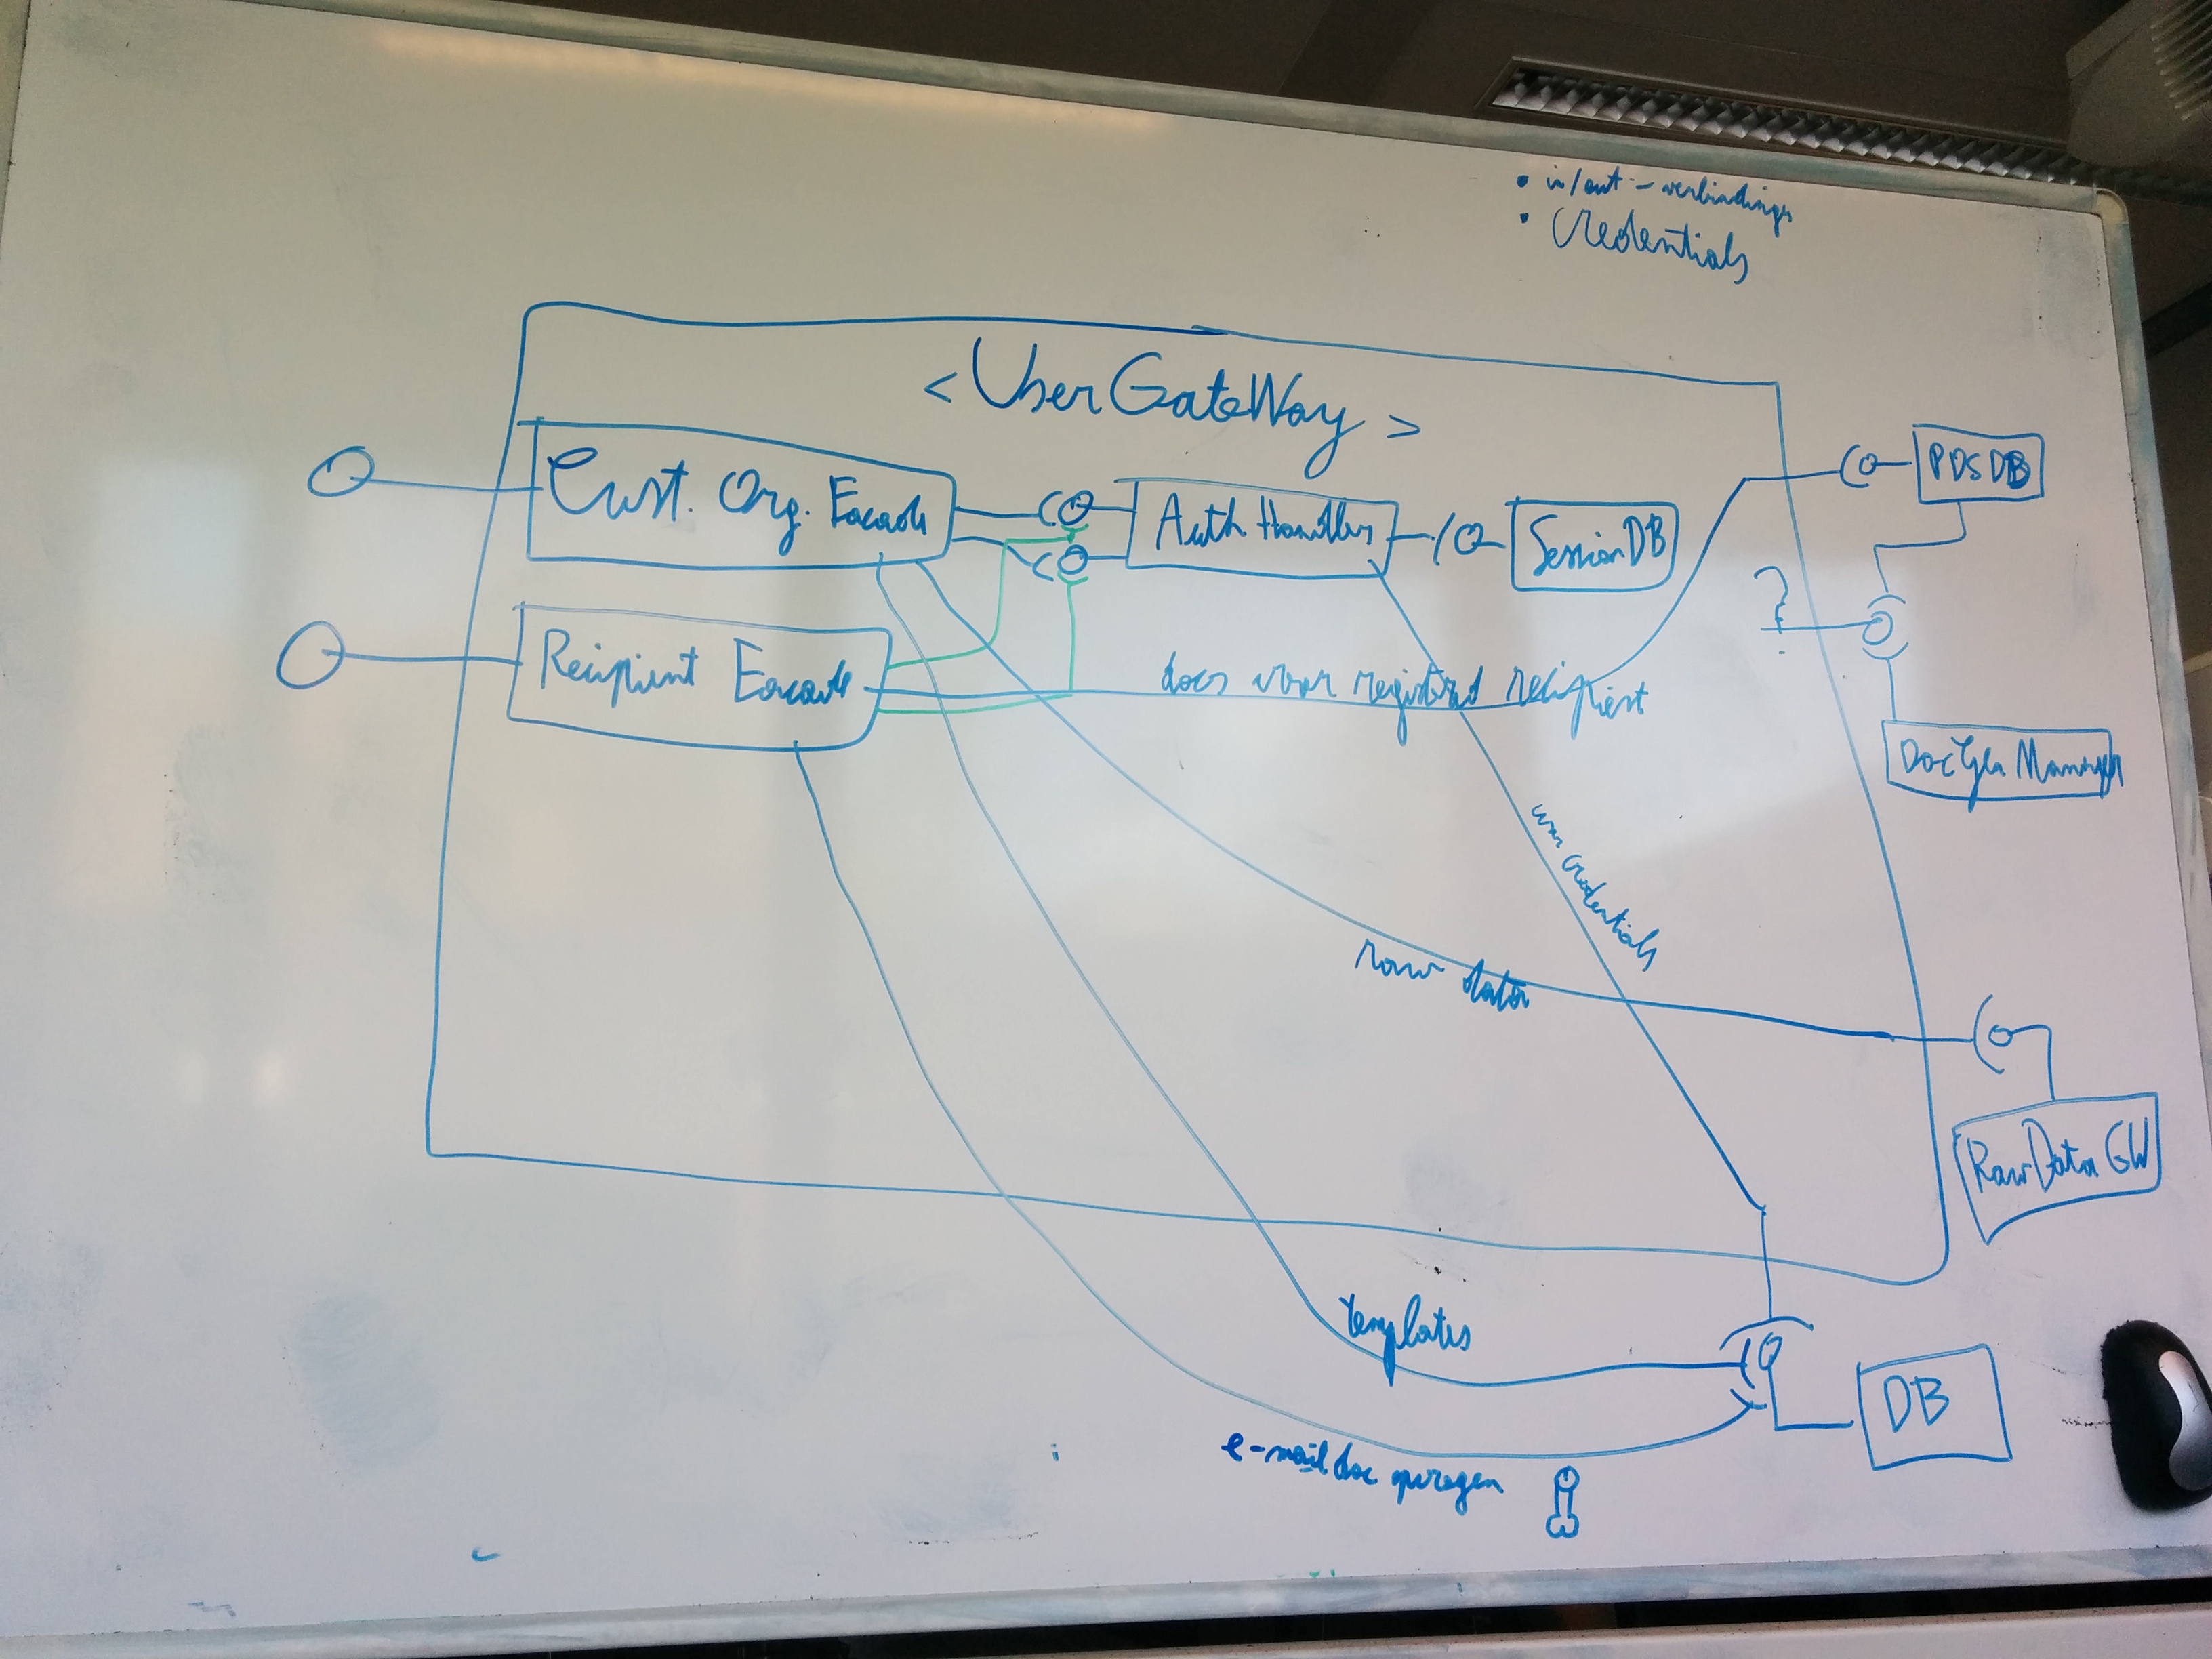 • in/out - verbindings
• Credentials
< UserGateWay >
Cust. Org. Facade
Auth Handler
SessionDB
PDSDB
?
Recipient Facade
docs voor registered recipient
DocGen Manager
user credentials
raw data
RawData GW
templates
DB
e-mail doc opvragen